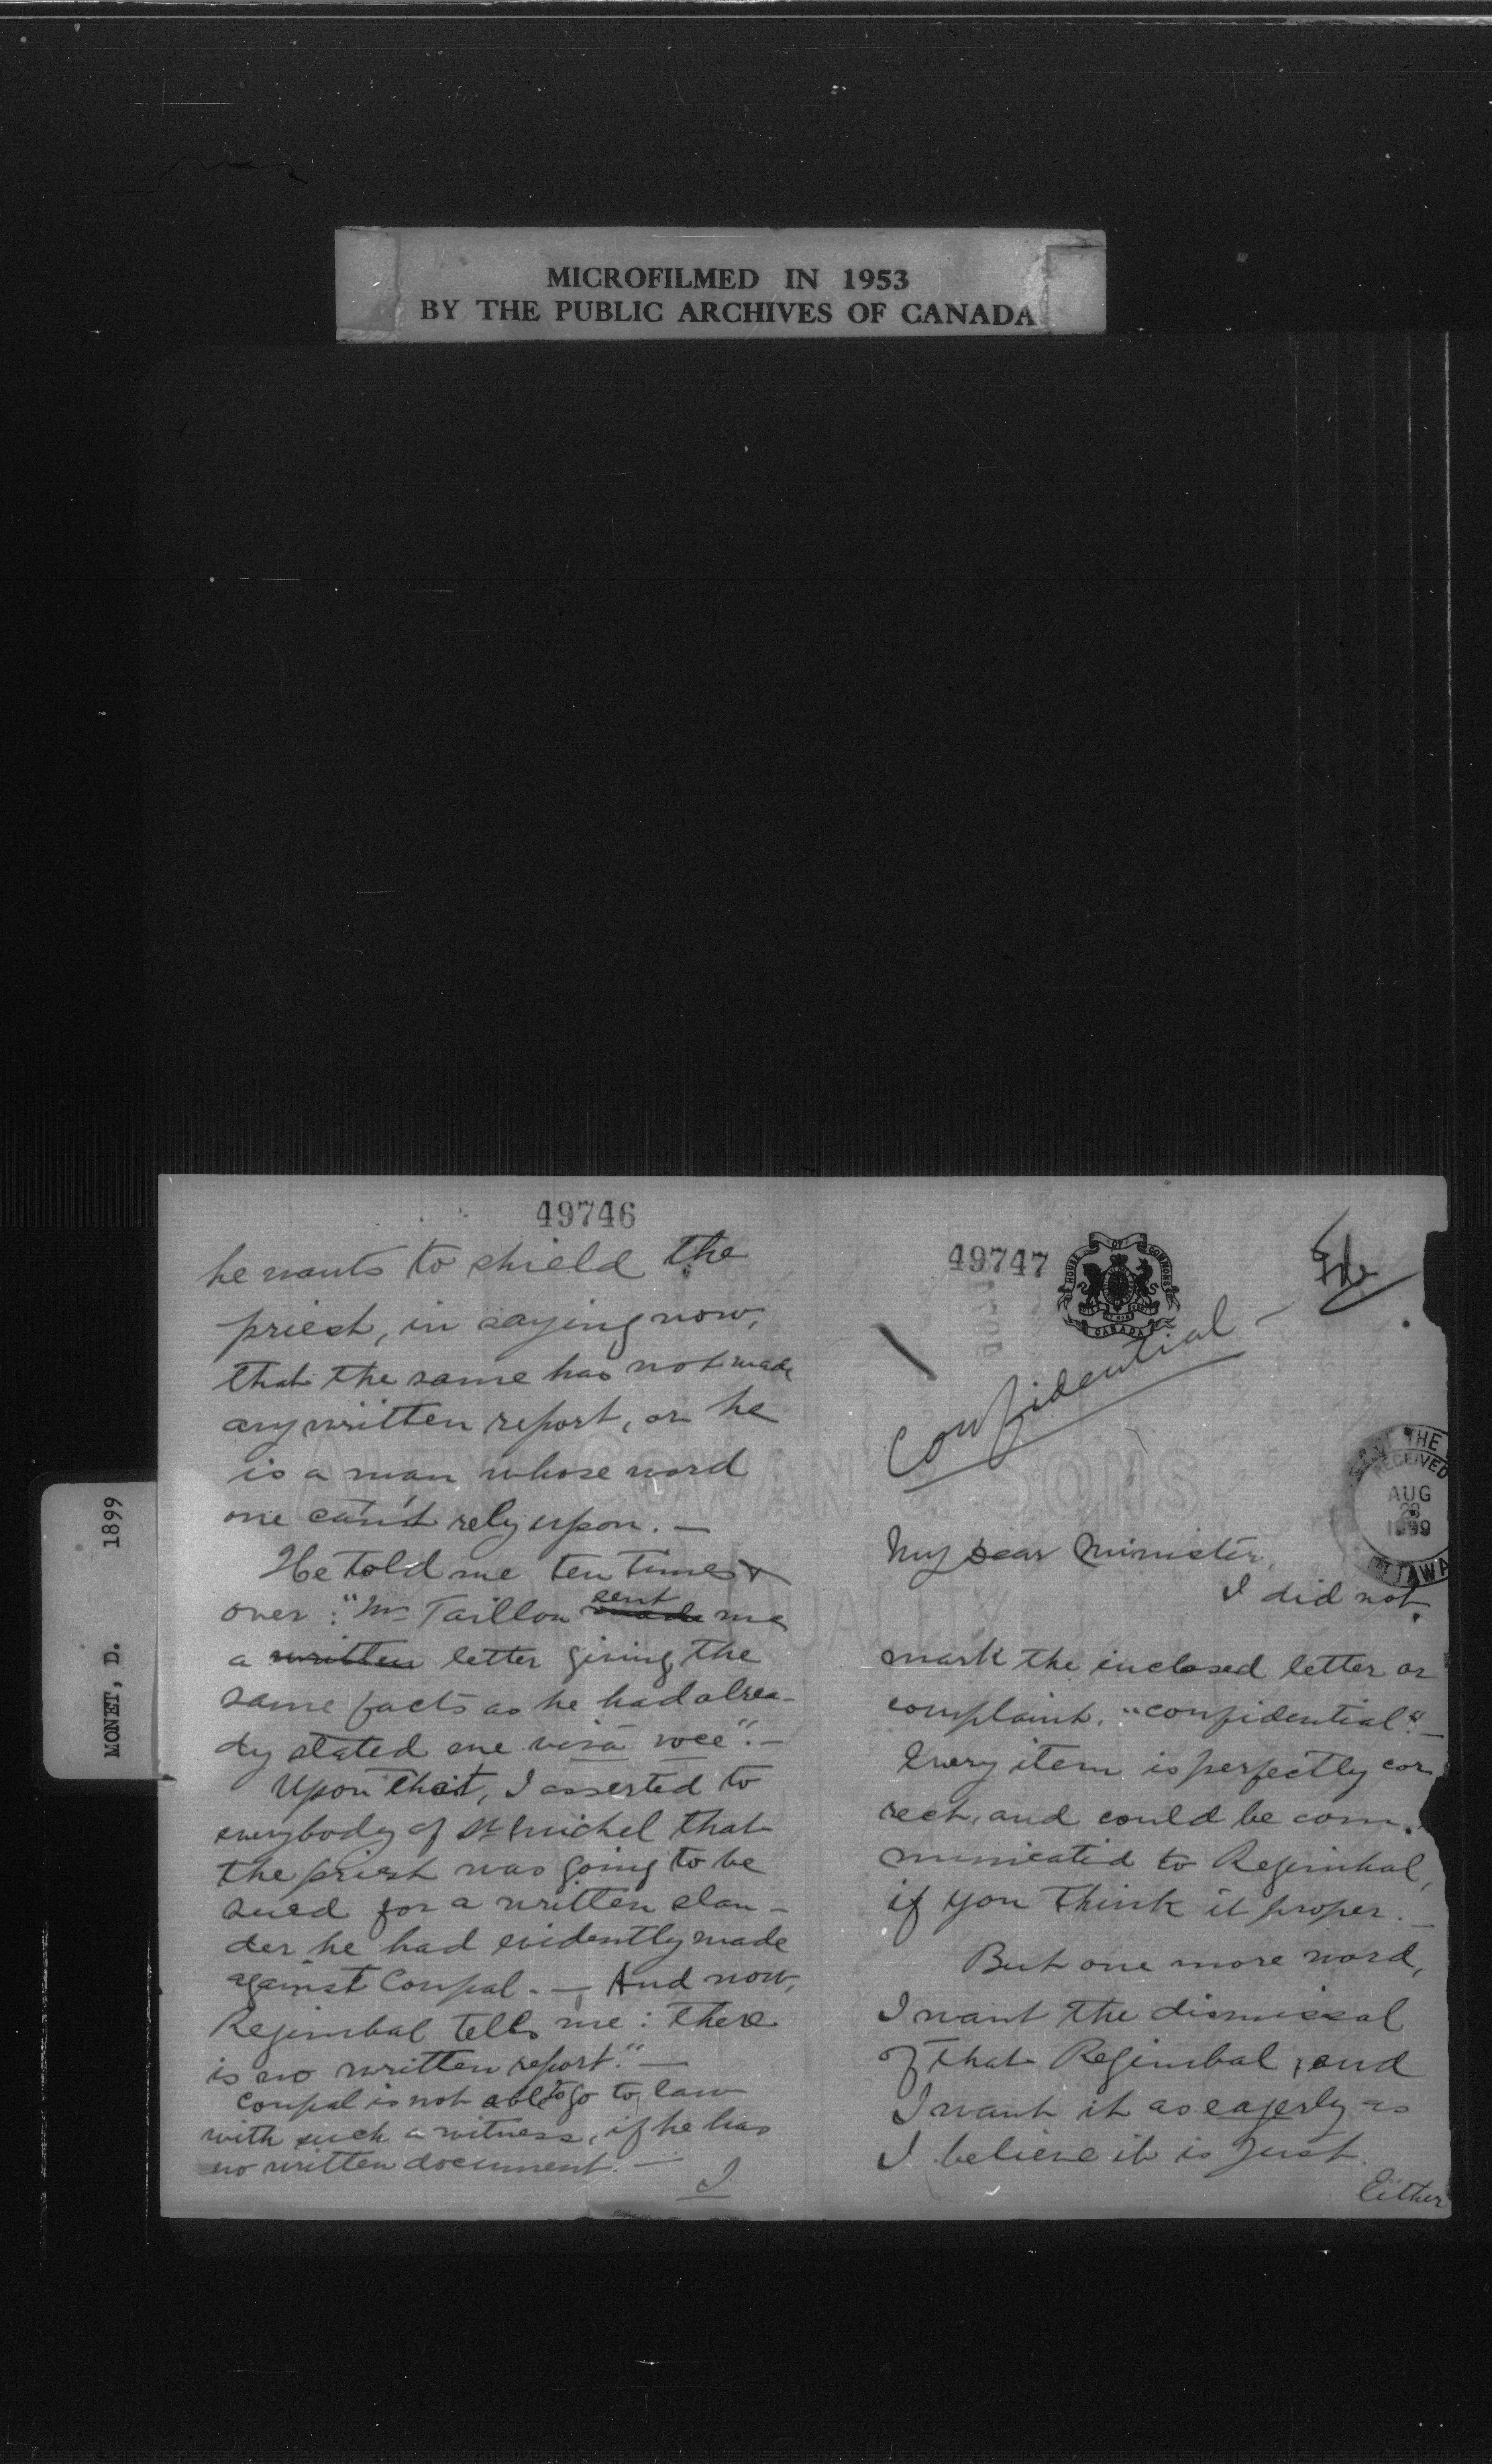 MICROFILMED IN 1953
BY THE PUBLIC ARCHIVES OF CANADA
MONET, D. 1899
49746
he wants to shield the
priest, in saying now,
that the same has not made
any written report, or he
is a man whose word
one can't rely upon. —
He told me ten times &
over : "Mr Taillon made sent me
a written letter giving the
same facts as he had alrea-
dy stated me viva voce". —
Upon that, I asserted to
everybody of St Michel that
the priest was going to be
sued for a written slan-
der he had evidently made
against Coupal. — And now,
Regimbal tells me : there
is no written report." —
Coupal is not able to go to law
with such a witness, if he has
no written document. —
I
49747
HOUSE OF COMMONS
CANADA
Confidential —
THE
RECEIVED
AUG
23
1899
OTTAWA
My dear Minister,
I did not
mark the inclosed letter or
complaint, "confidential". —
Every item is perfectly cor
rect, and could be com-
municated to Regimbal,
if you think it proper. —
But one more word,
I want the dismissal
of that Regimbal, and
I want it as eagerly as
I believe it is just.
Either